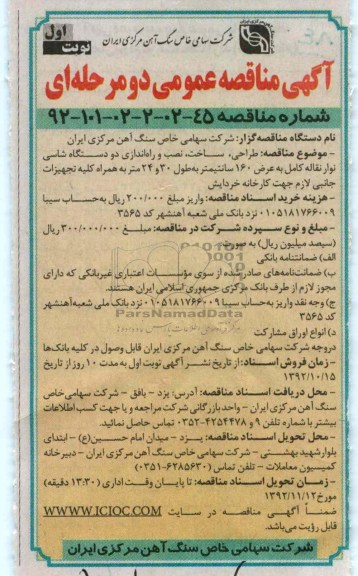 اول
نوبت
شرکت سهامی خاص سنگ آهن مرکزی ایران
آگهی مناقصه عمومی دو مرحله‌ای
شماره مناقصه ۴۵-۰۲-۲-۰۲-۱۰۱-۹۲
نام دستگاه مناقصه‌گزار: شرکت سهامی خاص سنگ آهن مرکزی ایران
- موضوع مناقصه: طراحی، ساخت، نصب و راه‌اندازی دو دستگاه شاسی
نوار نقاله کامل به عرض ۱۶۰ سانتیمتر به‌طول ۳۰ و ۲۴ متر به همراه کلیه تجهیزات
جانبی لازم جهت کارخانه خردایش
- هزینه خرید اسناد مناقصه: واریز مبلغ ۲۰۰/۰۰۰ ریال به‌حساب سیبا
۰۱۰۵۱۸۱۷۶۶۰۰۹ نزد بانک ملی شعبه آهنشهر کد ۳۵۶۳
- مبلغ و نوع سپرده شرکت در مناقصه: مبلغ ۳۰۰/۰۰۰/۰۰۰ ریال
(سیصد میلیون ریال) به صورت:
الف) ضمانتنامه بانکی
ب) ضمانت‌نامه‌های صادر شده از سوی مؤسسات اعتباری غیربانکی که دارای
مجوز لازم از طرف بانک مرکزی جمهوری اسلامی ایران هستند.
ج) وجه نقد واریز به‌حساب سیبا ۰۱۰۵۱۸۱۷۶۶۰۰۹ نزد بانک ملی شعبه آهنشهر
کد ۳۵۶۳
ParsNamadData
د) انواع اوراق مشارکت
در وجه شرکت سهامی خاص سنگ آهن مرکزی ایران قابل وصول در کلیه بانک‌ها
- زمان فروش اسناد: از تاریخ نشر آگهی نوبت اول به مدت ۱۰ روز از تاریخ
۱۳۹۲/۱۰/۱۵
- محل دریافت اسناد مناقصه: آدرس: یزد - بافق - شرکت سهامی خاص
سنگ آهن مرکزی ایران - واحد بازرگانی شرکت مراجعه و یا جهت کسب اطلاعات
بیشتر با شماره تلفن ۹ و ۴۲۵۴۴۷۸-۰۳۵۲ تماس حاصل نمائید.
- محل تحویل اسناد مناقصه: یزد - میدان امام حسین(ع) - ابتدای
بلوار شهید بهشتی - شرکت سهامی خاص سنگ آهن مرکزی ایران - دبیرخانه
کمیسیون معاملات - تلفن تماس (۶۲۸۵۶۳۰-۰۳۵۱)
- زمان تحویل اسناد مناقصه: تا پایان وقت اداری (۱۳:۳۰ دقیقه)
مورخ ۱۳۹۲/۱۱/۱۲
ضمناً آگهی مناقصه در سایت WWWW.ICIOC.COM
قابل رؤیت می‌باشد.
شرکت سهامی خاص سنگ آهن مرکزی ایران